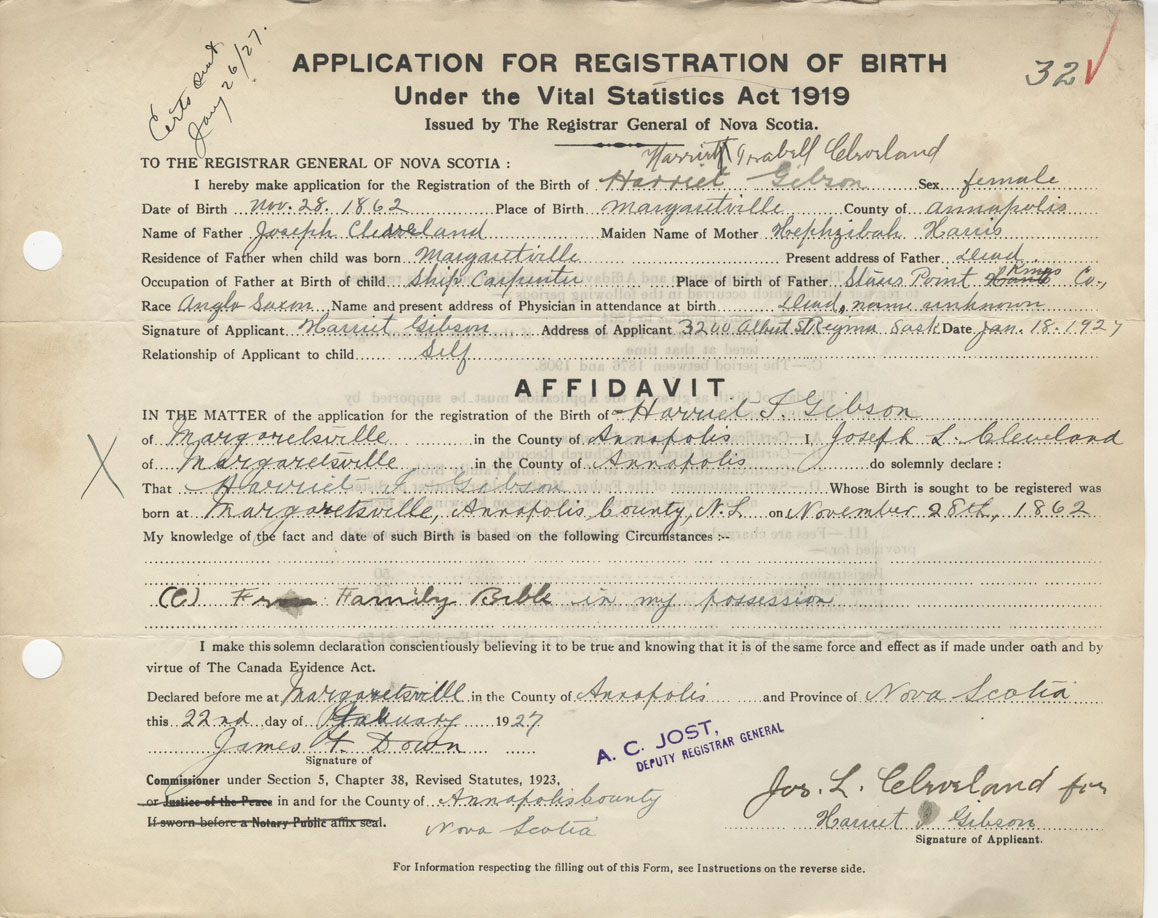 Certs sent
Jany 26/27.
APPLICATION FOR REGISTRATION OF BIRTH
32
Under the Vital Statistics Act 1919
Issued by The Registrar General of Nova Scotia.
Harriet Isabell Cleveland
TO THE REGISTRAR GENERAL OF NOVA SCOTIA :
I hereby make application for the Registration of the Birth of Harriet Gibson Sex female
Date of Birth Nov. 28. 1862 Place of Birth Margaretville County of Annapolis
Name of Father Joseph Cleaveland Maiden Name of Mother Hephzibah Harris
Residence of Father when child was born Margaretville Present address of Father Dead
Occupation of Father at Birth of child Ship Carpenter Place of birth of Father Point Kings Co.,
Race Anglo Saxon Name and present address of Physician in attendance at birth Dead, name unknown
Signature of Applicant Harriet Gibson Address of Applicant 3200 Albert St Regina Sask Date Jan. 18. 1927
Relationship of Applicant to child Self
AFFIDAVIT
IN THE MATTER of the application for the registration of the Birth of Harriet I. Gibson
of Margaretsville in the County of Annapolis I, Joseph L. Cleveland
X of Margaretsville in the County of Annapolis do solemnly declare :
That Harriet I Gibson Whose Birth is sought to be registered was
born at Margaretsville, Annapolis County, N.S. on November 28th, 1862
My knowledge of the fact and date of such Birth is based on the following Circumstances :--
(C) Family Bible in my possession
I make this solemn declaration conscientiously believing it to be true and knowing that it is of the same force and effect as if made under oath and by
virtue of The Canada Evidence Act.
Declared before me at Margaretsville in the County of Annapolis and Province of Nova Scotia
this 22nd day of 1927
James H. Down
Signature of
A. C. JOST,
DEPUTY REGISTRAR GENERAL
Commissioner under Section 5, Chapter 38, Revised Statutes, 1923,
or Justice of the Peace in and for the County of Annapolis County
Jos. L. Cleveland for
If sworn before a Notary Public affix seal.
Nova Scotia
Harriet Gibson
Signature of Applicant.
For Information respecting the filling out of this Form, see Instructions on the reverse side.